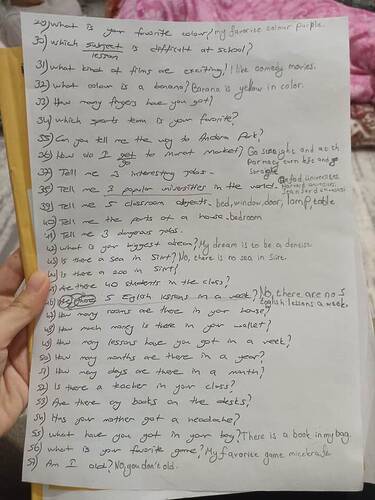 29) What is your favorite colour? My favorite colour purple.
30) Which subject is difficult at school?
lesson
31) What kind of films are exciting? I like comedy movies.
32) What colour is a banana? Banana is yellow in color.
33) How many fingers have you got?
34) Which sports team is your favorite?
35) Can you tell me the way to Andera Park?
36) How do I get to Murat Market? Go straight and at th
go
Parmacy turn left and go
straight
37) Tell me 3 interesting jobs.
38) Tell me 3 popular universities in the world.
39) Tell me 5 classroom objects. bed, window, door, lamp, table
40) Tell me the parts of a house. bedroom
41) Tell me 3 dangerous jobs.
42) What is your biggest dream? My dream is to be a dentise.
43) Is there a sea in Siirt? No, there is no sea in Siirt.
44) Is there a zoo in Siirt?
45) Are there 40 students in the class?
46) 5 English lessons in a week? No, there are no 5
English lessons a week.
47) How many rooms are there in your house?
48) How much money is there in your wallet?
49) How many lessons have you got in a week?
50) How many months are there in a year?
51) How many days are there in a month?
52) Is there a teacher in your class?
53) Are there my books on the desks?
54) Has your mother got a headache?
55) What have you got in your bag? There is a book in my bag.
56) What is your favorite game? My favorite game
57) Am I old? No, you don't old.